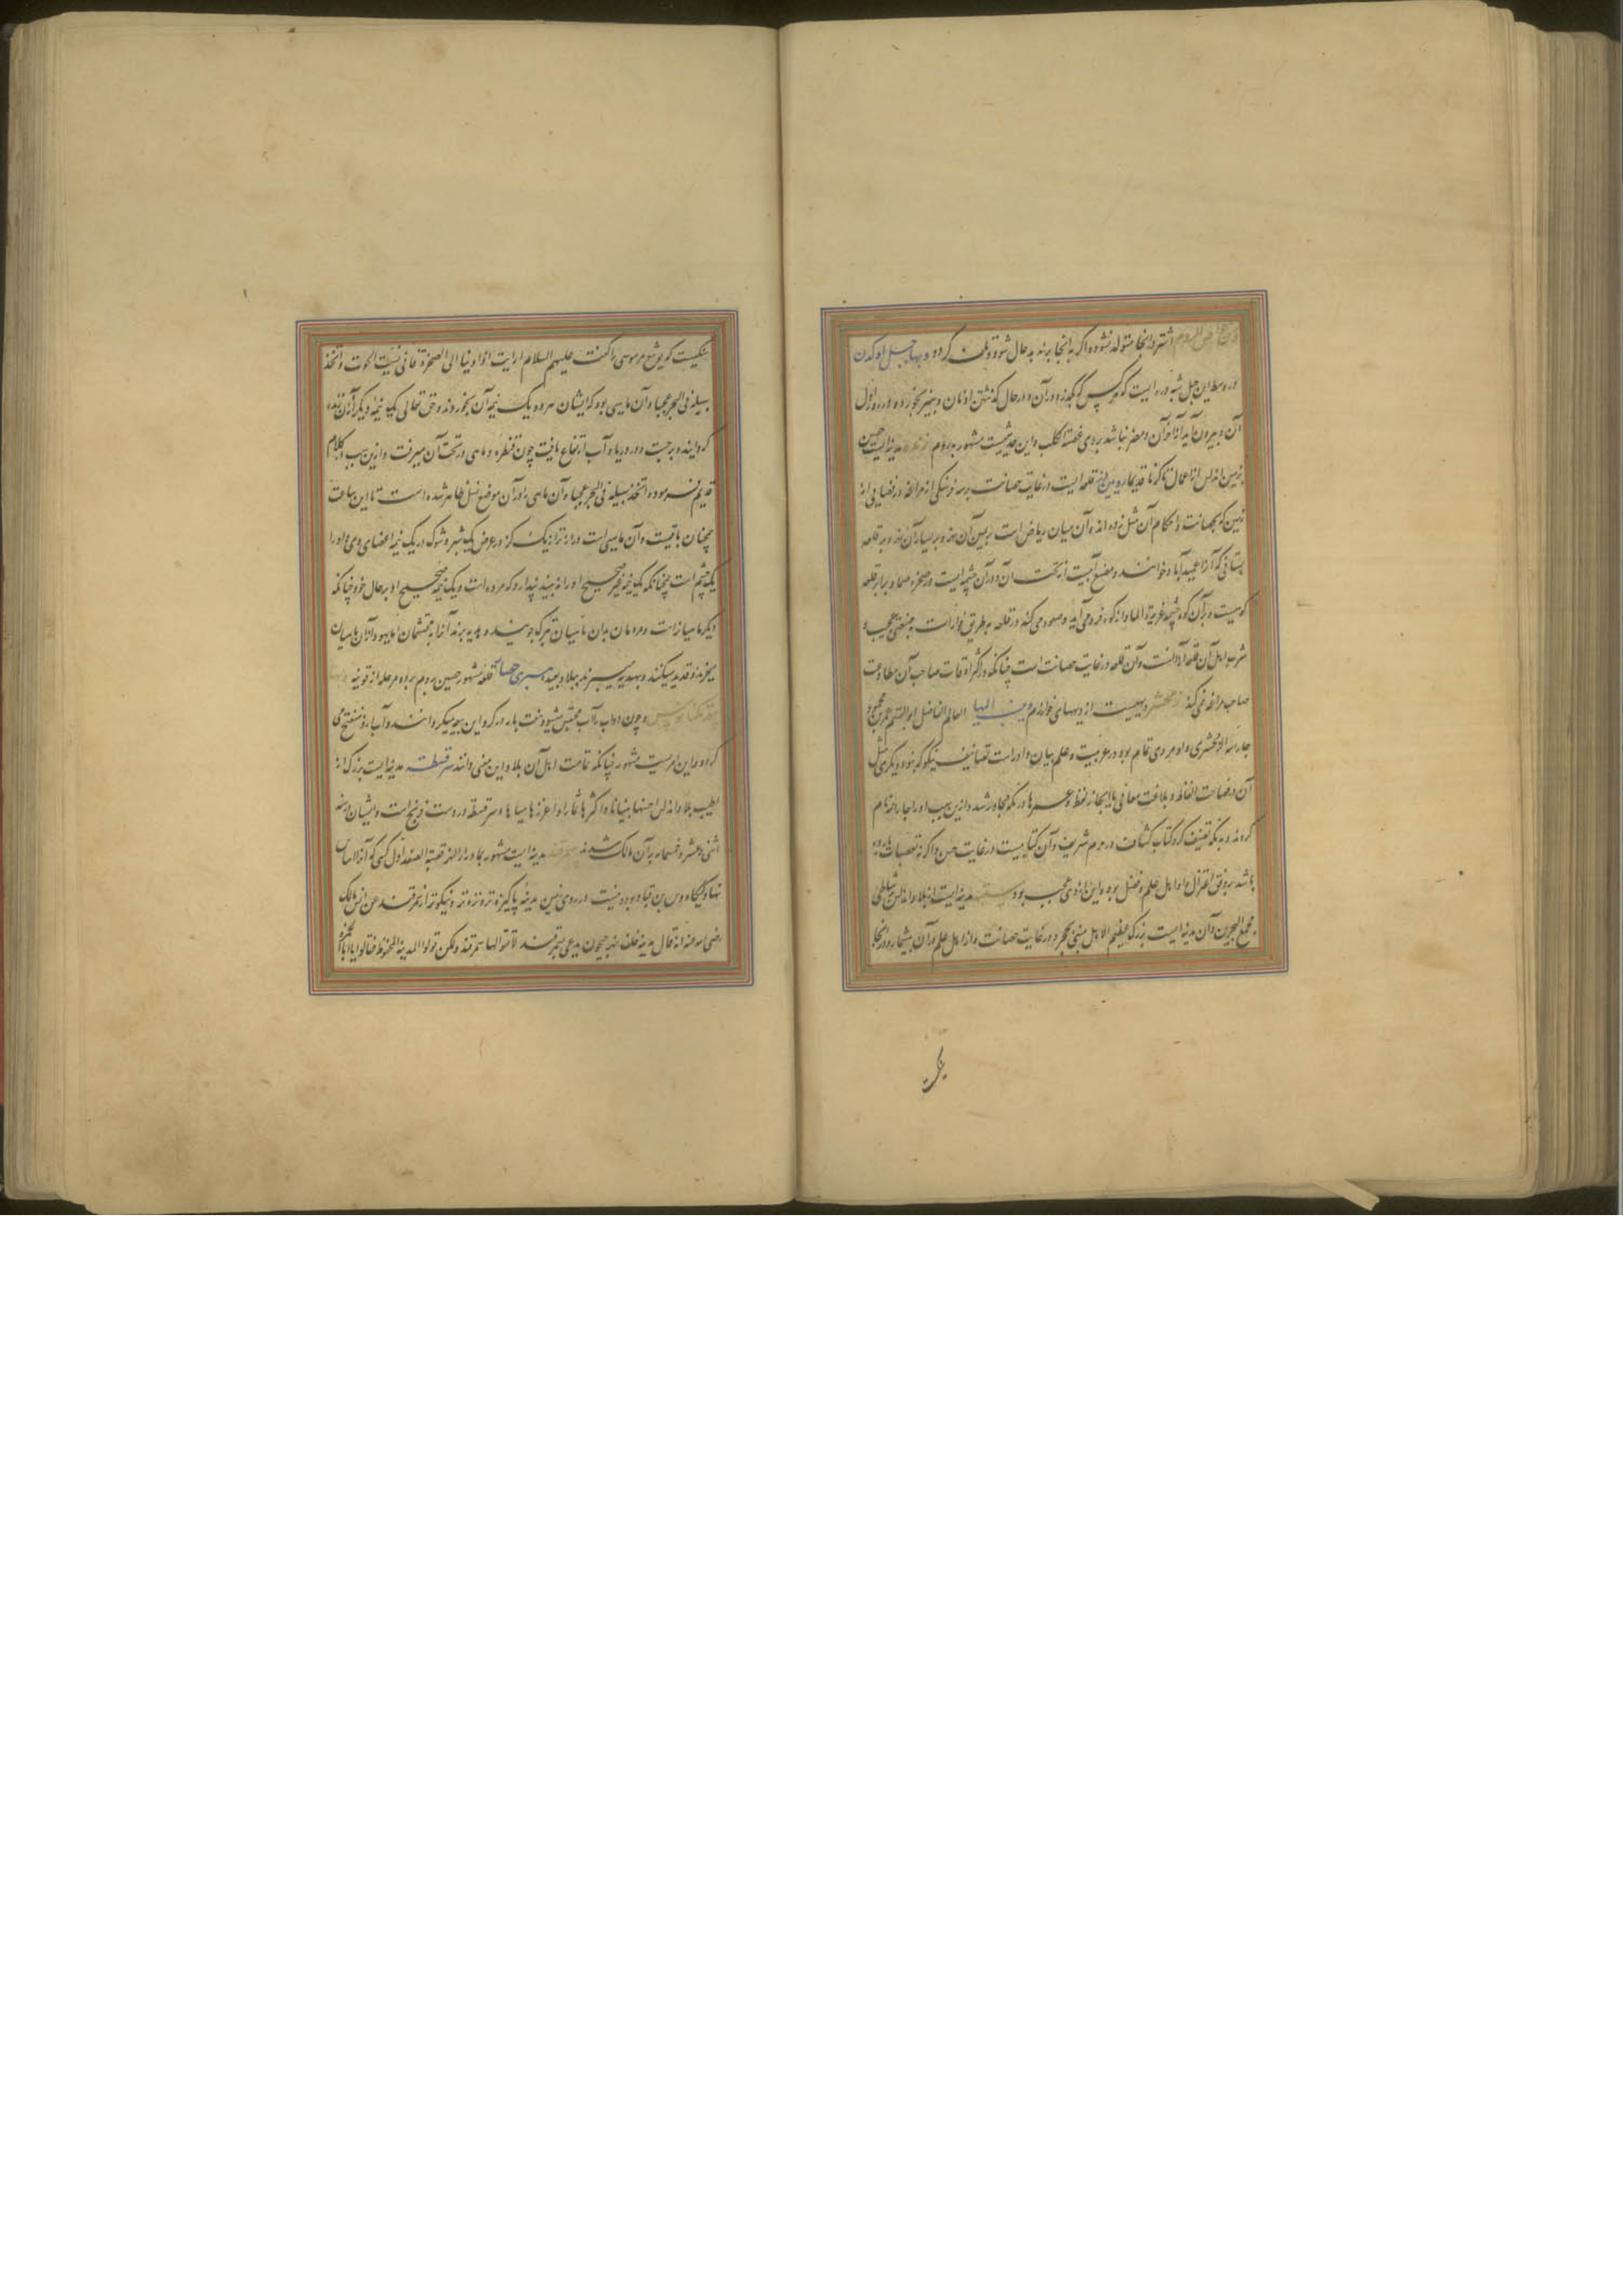 من خواص الروم اشتر در انجا متولد نشود و اگر به انجا برند بد حال شود و تلف گردد وبها جبل اولدن
در وسط این جبل شبه دره ایست که هر کس که بگذرد در آن و در حال گذشتن از نان و پنیر بخورد
آن و بیرون آید از آخر آن مضر نباشد بروی عضة الکلب و این حدیثیست مشهور بروم مدینه ایست حصین
بزمین اندلس از اعمال تاکرنا قدیم قلعه ایست در غایت حصانت بر سه فرسنگی از مراغه در فضایی از
زمین که بحصانت و احکام آن مثل زده اند و آن میان ریاض است بر یمین آن نهر و بر یسار آن نهر و بر قلعه
بستانی که آنرا عمیدآباد خوانند و مصنع آبیست از تحت آن و در آن چشمه ایست در صخره صما و برابر قلعه
کوهیست و بر آن کوه چشمه غزیرة الماء از کوه فرو می آید و صعود می کند در قلعه بطریق فوارات بصنعتی عجیب و
شرب اهل آن قلعه از آنست و آن قلعه در غایت حصانت است چنانکه در اکثر اوقات صاحب آن مطاوعت
صاحب مراغه نمی کند زمخشر دیهیست از دیههای خوارزم وینسب الیها العالم الفاضل ابو القسم عمر بن محمود
جار الله الزمخشری و او مردی تمام بود در عربیت و علم بیان و او راست تصانیف نیکو که نبود دیگری مثل
آن در فصاحت الفاظ و بلاغت معانی با ایجاز لفظ و عمرها در مکه مجاور شد و ازین سبب او را جار الله نام
کردند و بمکه تصنیف کرد کتاب کشاف در حرم شریف و آن کتابیست در غایت حسن و اگر نه تعصبات بارده
باشد بر وفق اعتزال و او اهل علم و فضل بود و این از وی عجب بود سبته مدینه ایست از بلاد اندلس بر شاطی
مجمع البحرین و آن مدینه ایست بزرگ عظیم الاهل مبنی بحجر و در غایت حصانت و از اهل علم در آن بیشمار و در انجا
سنگیست
سنگیست که یوشع مر موسی را گفت علیهم السلام ارایت اذ اوینا الی الصخرة فانی نسیت الحوت و اتخذ
سبیله فی البحر عجبا و آن ماهیی بود که ایشان هر دو یک نیمه آن بخوردند و حق تعالی یک نیمه دیگر آنرا زنده
گردانید و برجست و در دریا و آب ارتفاع یافت چون قنطره و ماهی در تحت آن میرفت و ازین سبب در کلام
قدیم فرمود و اتخذ سبیله فی البحر عجبا و آن ماهی را در آن موضع نسل ظاهر شده است تا این ساعت
همچنان باقیست و آن ماهیی است درازتر از یک گز در عرض یک شبر و شوک در یک نیمه اعضای وی و او را
یک چشم است همچنانکه یک نیمه غیر صحیح او را نه بیند پندارد که مرده است و یک نیمه صحیح او بر حال خود چنانکه
دیگر ماهیانراست و مردمان بدان ماهیان تبرک جویند و هدیه برند آنرا به محتشمان اما یهود از آن ماهیان
بخرند و قدید میکنند و بهدیه میبرند ببلاد بعید سبری حصار قلعه مشهور حصین بروم براه مرحله از قونیه و بها
و چون دواب را آب محتبس شود سخت بار در گرد این بیعه میگردانند و آب او منفتح می
گردد و این امریست مشهور چنانکه تمامت اهل آن بلاد این معنی دانند سرقسطه مدینه ایست بزرگ از
اطیب بلاد اندلس احسنها بنیانا و اکثرها ثمارا و اغزرها میاها و سرقسطه در دست فرنج است و ایشان در سنه
اثنی عشر و خمسمایه بر آن مالک شدند سمرقند مدینه ایست مشهور بماوراءالنهر قصبة الصغد اول کسی که آنرا اساس
نهاد کیکاوس بن قباد بود و نیست در روی زمین مدینهٔ پاکیزه تر و نزه تر و نیکوتر از سمرقند عن انس مالک
رضی الله عنه انه قال مدینة خلف نهر جیحون یدعی سمرقند لا تقولوا لها سمرقند و لکن قولوا المدینة المحفوظة فقالوا یا ابا حمزة